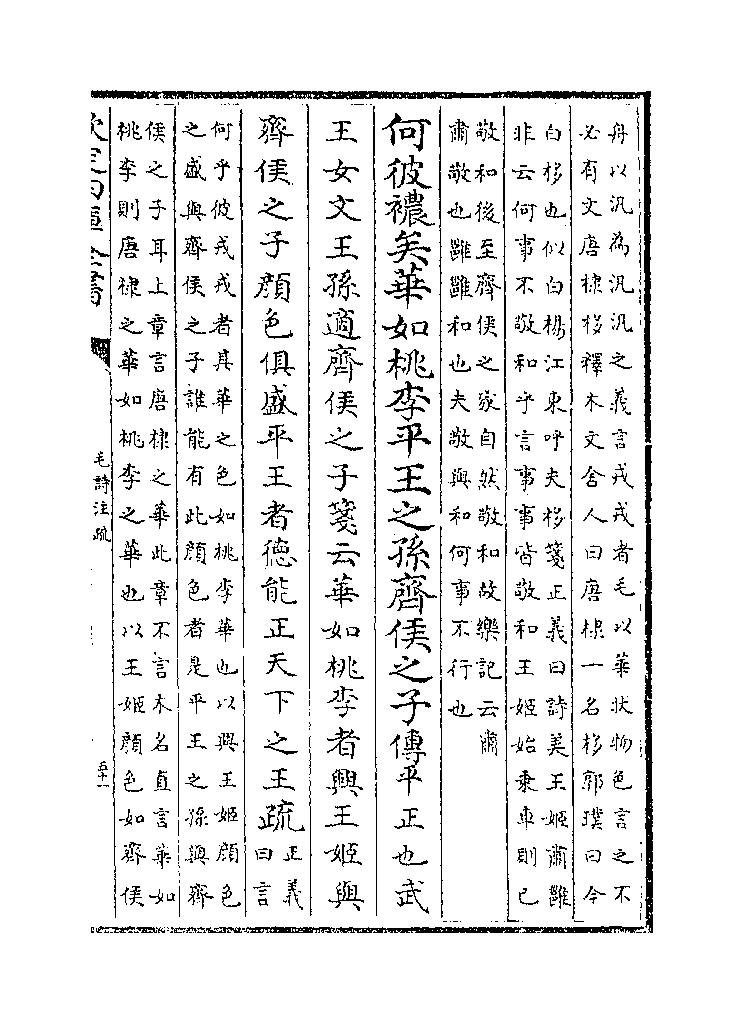 舟以汎為汎汎之義言戎戎者毛以華狀物色言之不
必有文唐棣栘釋木文舍人曰唐棣一名栘郭璞曰今
白栘也似白楊江東呼夫栘箋正義曰詩美王姬肅雝
非云何事不敬和乎言事事皆敬和王姬始乗車則已
敬和後至齊侯之家自然敬和故樂記云肅
肅敬也雝雝和也夫敬與和何事不行也
何彼襛矣華如桃李平王之孫齊侯之子傳平正也武
王女文王孫適齊侯之子箋云華如桃李者興王姬與
齊侯之子顔色俱盛平王者德能正天下之王疏正義
曰言
何乎彼戎戎者其華之色如桃李華也以興王姬顔色
之盛與齊侯之子誰能有此顔色者是平王之孫與齊
侯之子耳上章言唐棣之華此章不言木名直言華如
桃李則唐棣之華如桃李之華也以王姬顔色如齊侯
欽定四庫全書
毛詩注疏